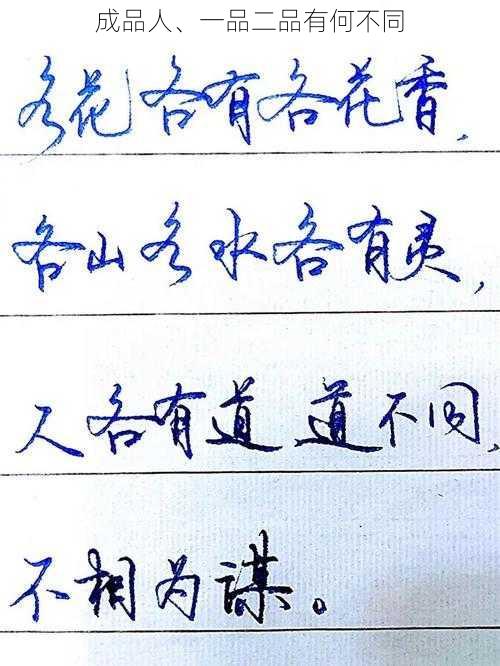 成品人、一品二品有何不同
各花各有各花香,
各山各水各有灵,
人各有道,道不同,
不相为谋。